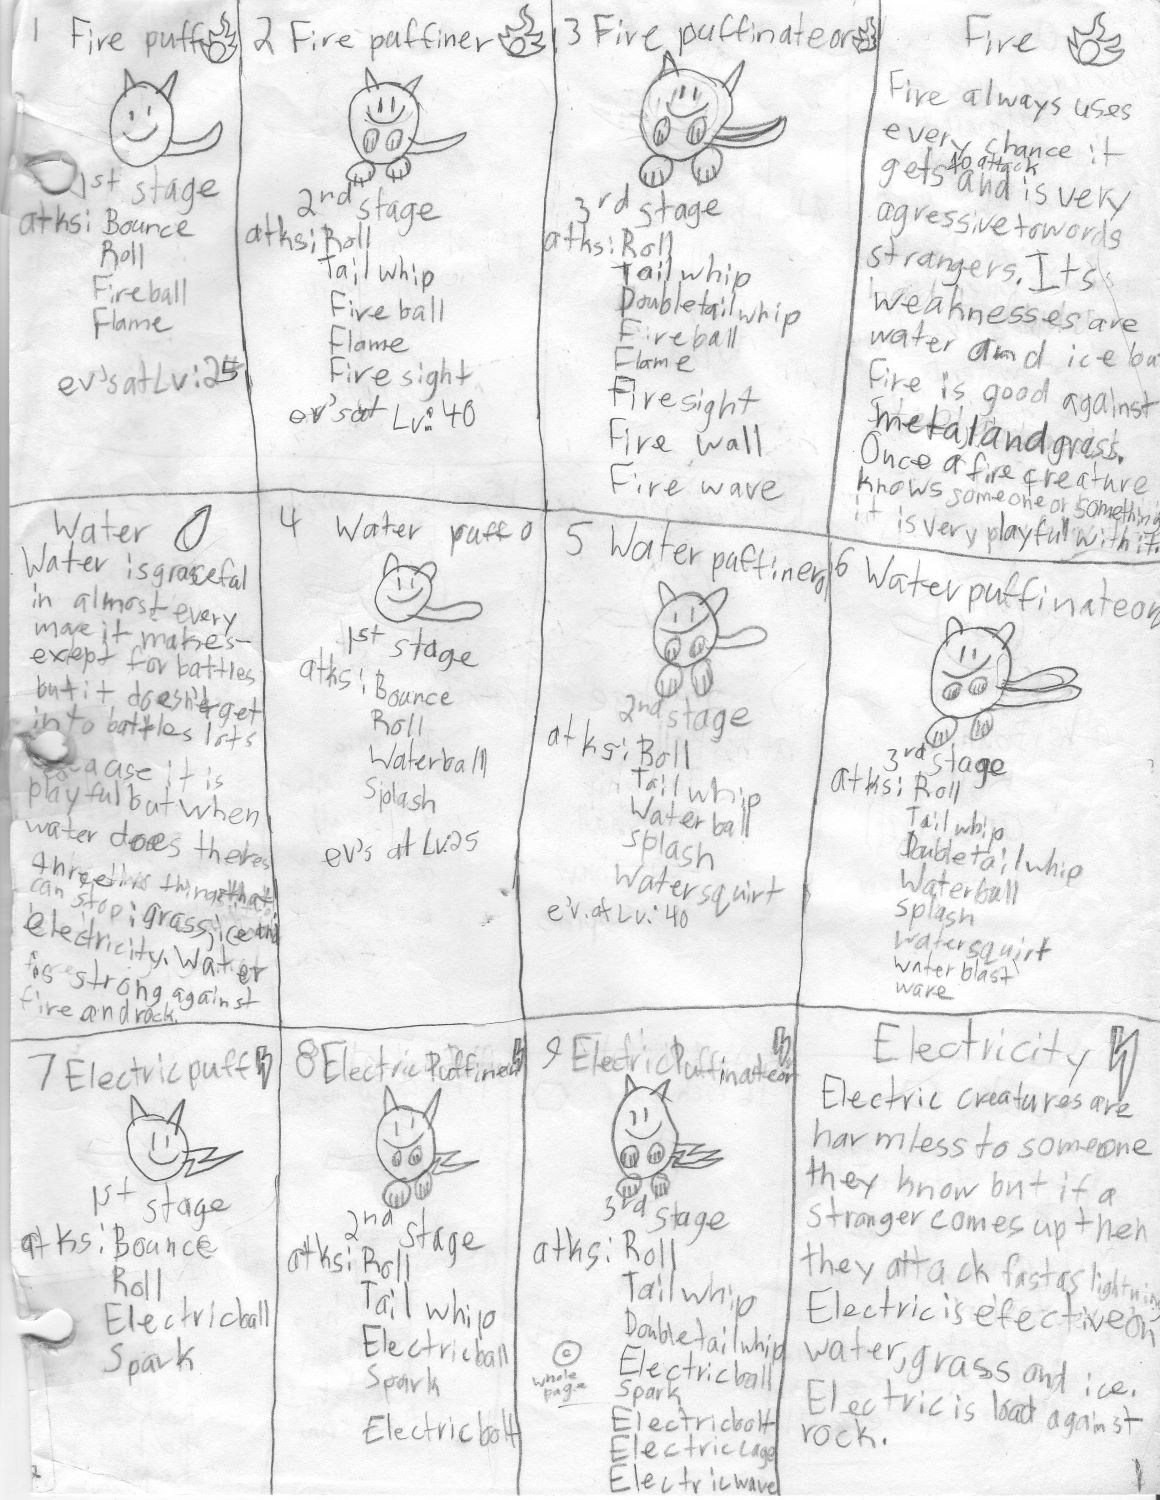 1 Fire puff
1st stage
atks: Bounce
Roll
Fireball
Flame
ev's at Lv: 25
2 Fire puffiner
2nd stage
atks: Roll
Tail whip
Fire ball
Flame
Fire sight
ev's at Lv: 40
3 Fire puffinateor
3rd stage
atks: Roll
Tail whip
Doubletailwhip
Fireball
Flame
Fire sight
Fire wall
Fire wave
Fire
Fire always uses
every chance it
gets to attack and is very
agressive towords
strangers. Its
weaknesses are
water and ice bu
Fire is good against
metal and grass.
Once a fire creature
knows someone or something
it is very playful with it.
Water
Water is graceful
in almost every
move it makes-
except for battles
but it doesn't get
into battles lots
it is
playful but when
water does theres
three things that
can stop: grass, ice and
electricity. Water
is strong against
fire and rock.
4 Water puff
1st stage
atks: Bounce
Roll
Waterball
Splash
ev's at Lv:25
5 Water puffiner
2nd stage
atks: Roll
Tail whip
Water ball
splash
Watersquirt
ev. at Lv: 40
6 Water puffinateor
3rd stage
atks: Roll
Tail whip
Doubletailwhip
Waterball
splash
Watersquirt
water blast
wave
7 Electricpuff
1st stage
atks: Bounce
Roll
Electricball
Spark
8 ElectricPuffiner
2nd stage
atks: Roll
Tail whip
Electricball
Spark
Electricbolt
9 ElectricPuffinateor
3rd stage
atks: Roll
Tail whip
Doubletailwhip
Electricball
Spark
Electricbolt
Electriccage
Electricwave
© whole
page
Electricity
Electric creatures are
harmless to someone
they know but if a
stranger comes up then
they attack fast as lightning
Electric is efective on
water, grass and ice.
Electric is bad against
rock.
1